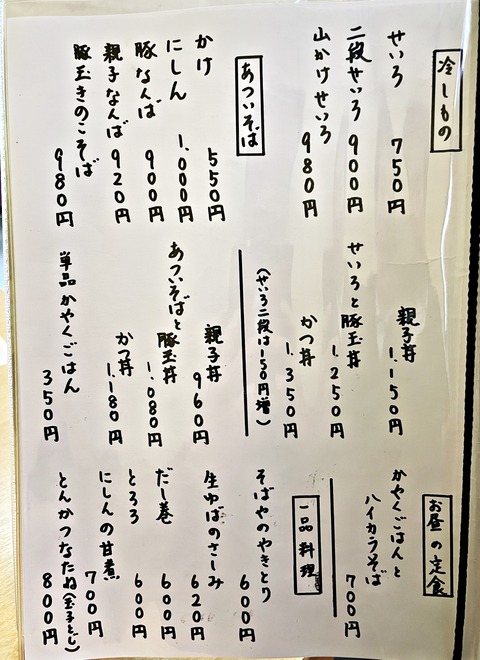 冷しもの
せいろ 750円
二段せいろ 900円
山かけせいろ 980円
あついそば
かけ 550円
にしん 1,000円
豚なんば 900円
親子なんば 920円
豚玉きのこそば 980円
親子丼 1,150円
せいろと豚玉丼 1,250円
かつ丼 1,350円
(せいろ二段は150円増)
親子丼 960円
あついそばと豚玉丼 1,080円
かつ丼 1,180円
単品かやくごはん 350円
お昼の定食
かやくごはんと
ハイカラそば 700円
一品料理
そばやのやきとり 600円
生ゆばのさしみ 620円
だし巻 600円
とろろ 600円
にしんの甘煮 700円
とんかつなたね(玉子とじ) 800円